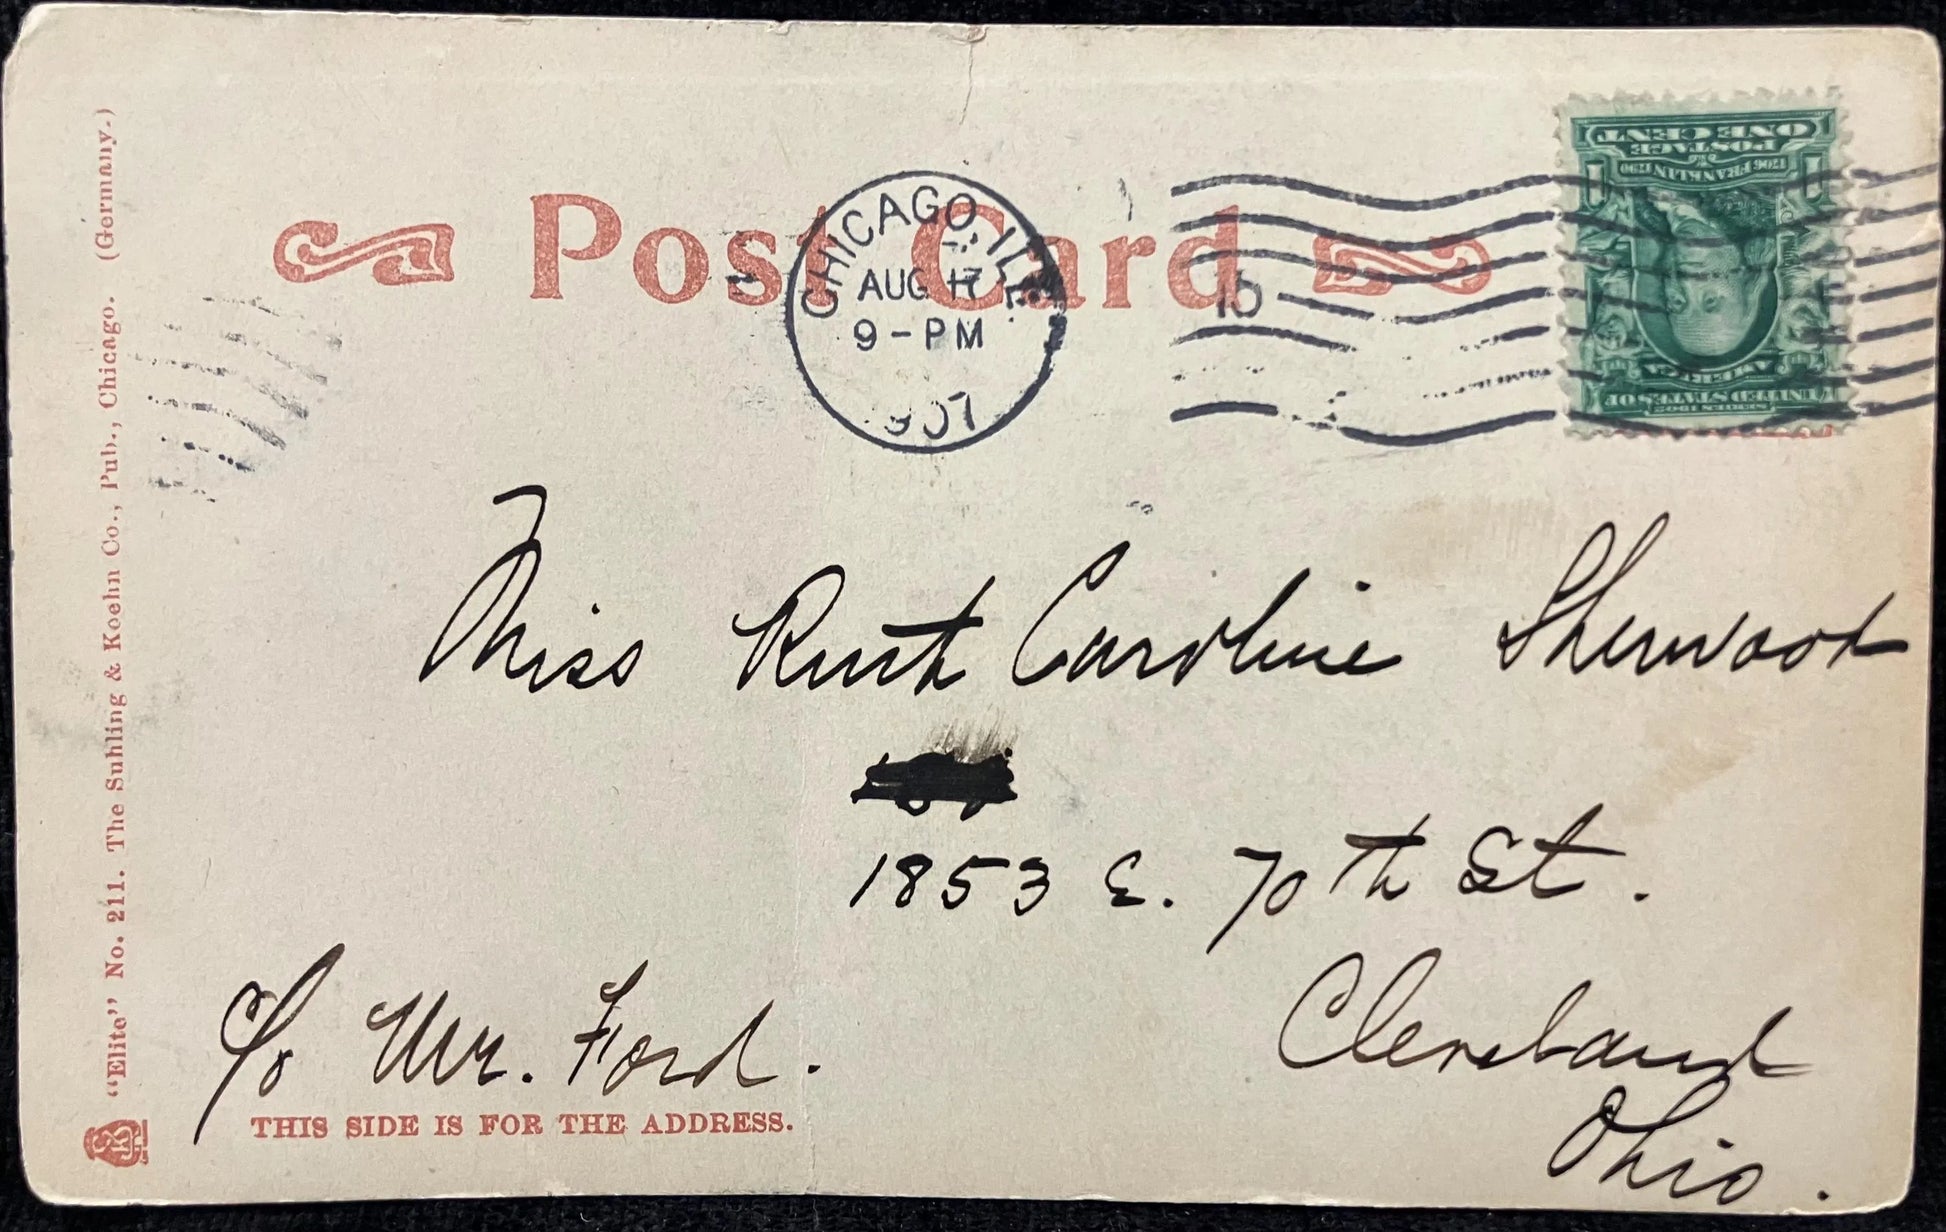 Post Card
CHICAGO, ILL.
AUG 17
9-PM
1907
ONE CENT
POSTAGE
1706 FRANKLIN 1790
1 1
AMERICA
SERIES 1902
UNITED STATES OF
Miss Ruth Caroline Sherwood
1853 E. 70th St.
Cleveland
Ohio.
c/o Mr. Ford.
THIS SIDE IS FOR THE ADDRESS.
"Elite" No. 211. The Suhling & Koehn Co., Pub., Chicago. (Germany.)